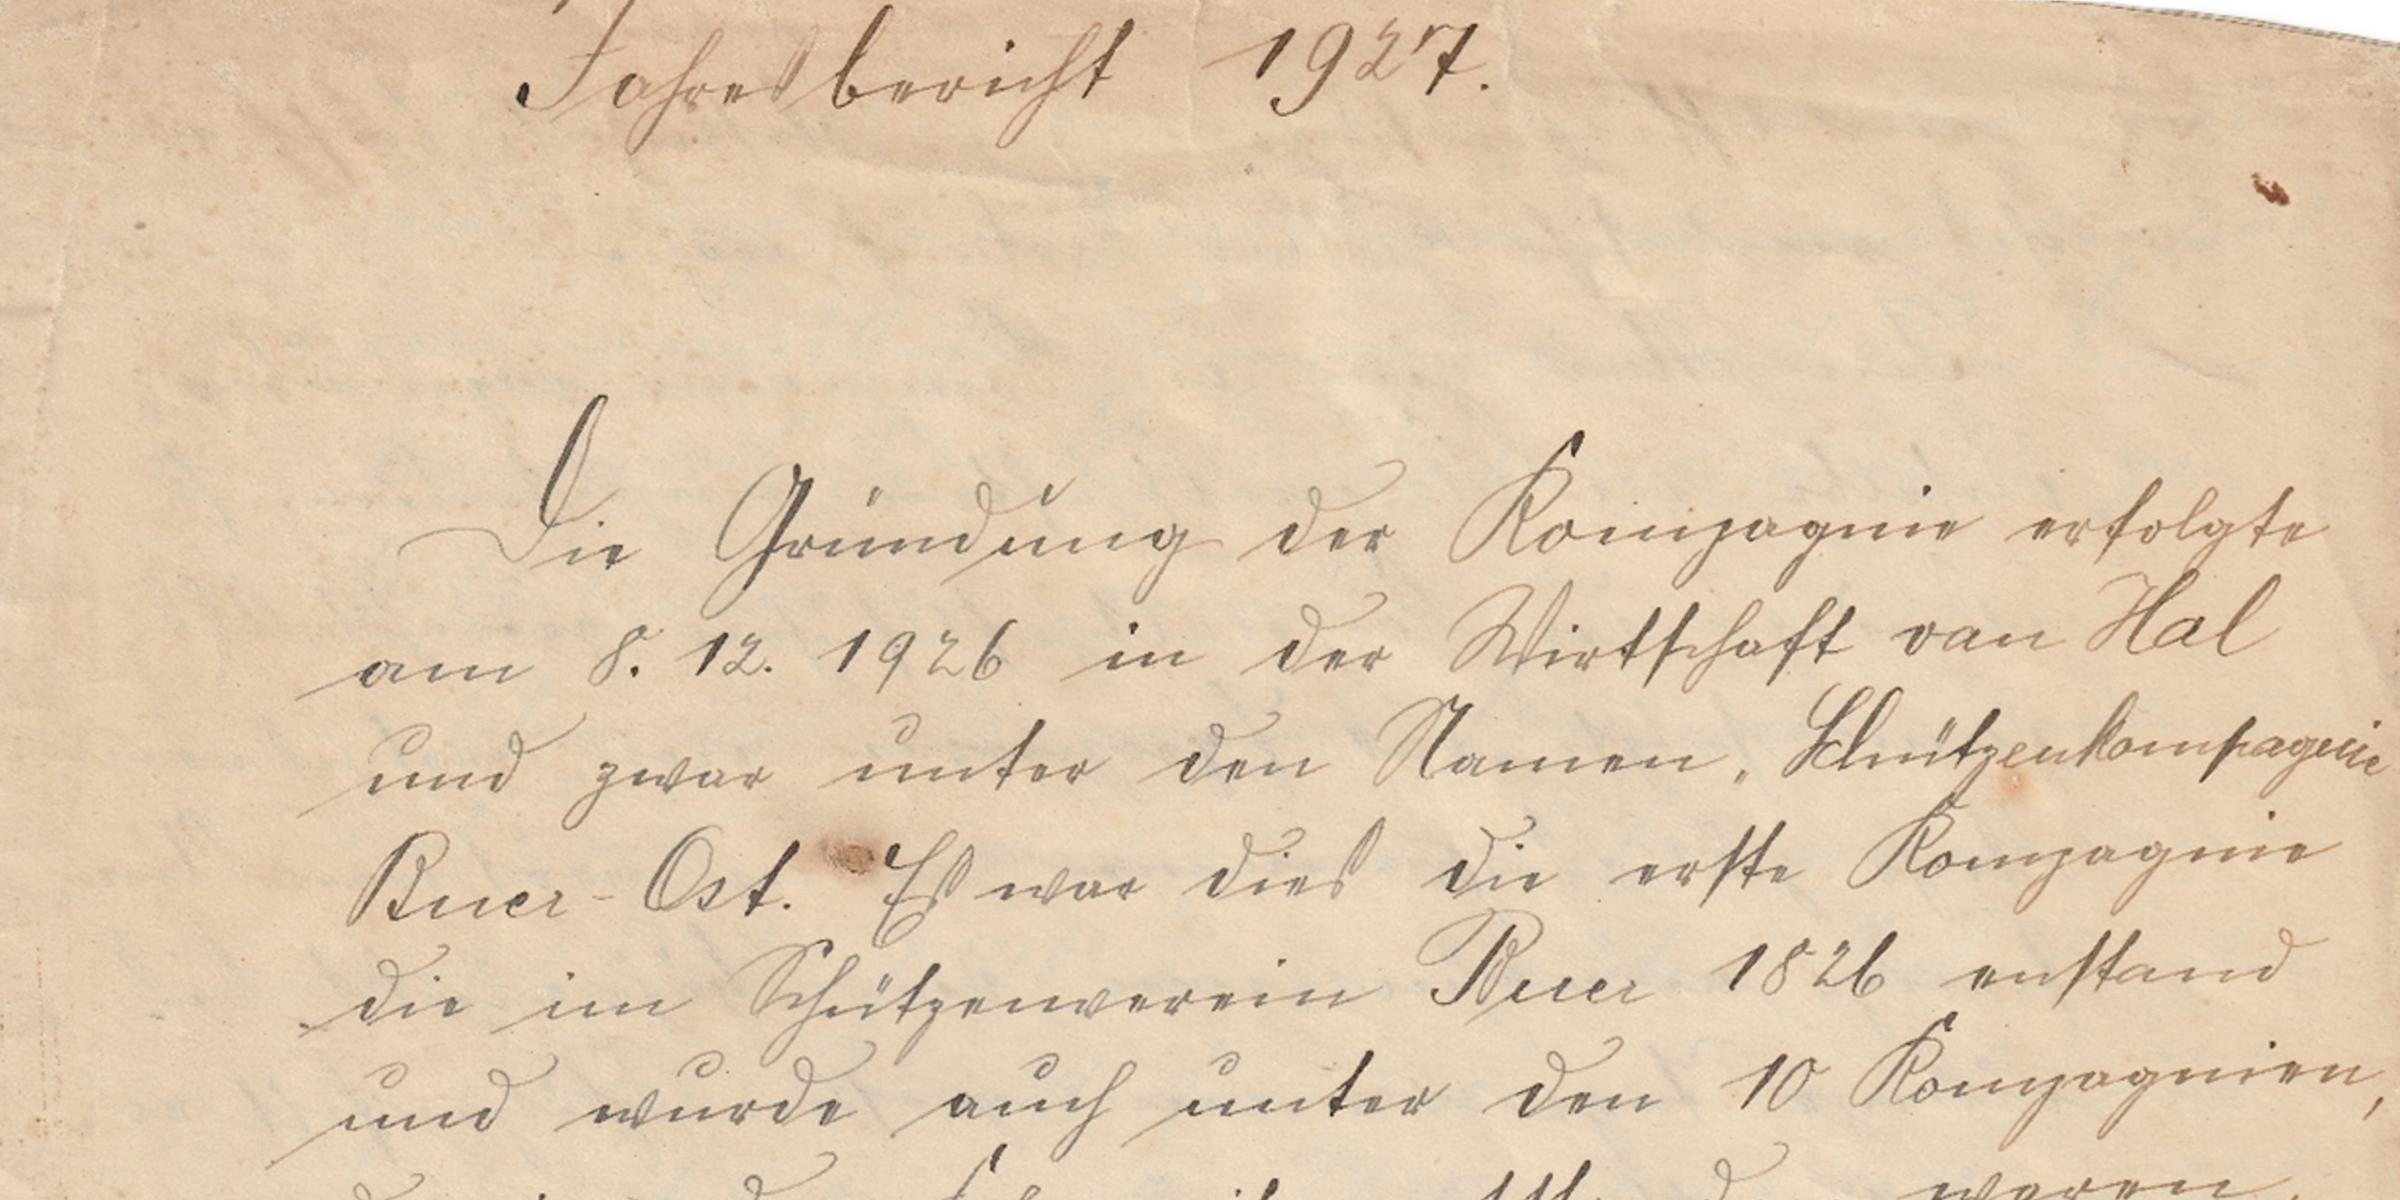 Jahresbericht 1927.
Die Gründung der Kompagnie erfolgte
am 8. 12. 1926 in der Wirtschaft van Hal
und zwar unter den Namen „Schützenkompagnie
Buer-Ost. Es war dies die erste Kompagnie
die im Schützenverein Buer 1826 enstand
und wurde auch unter den 10 Kompagnien,
waren.